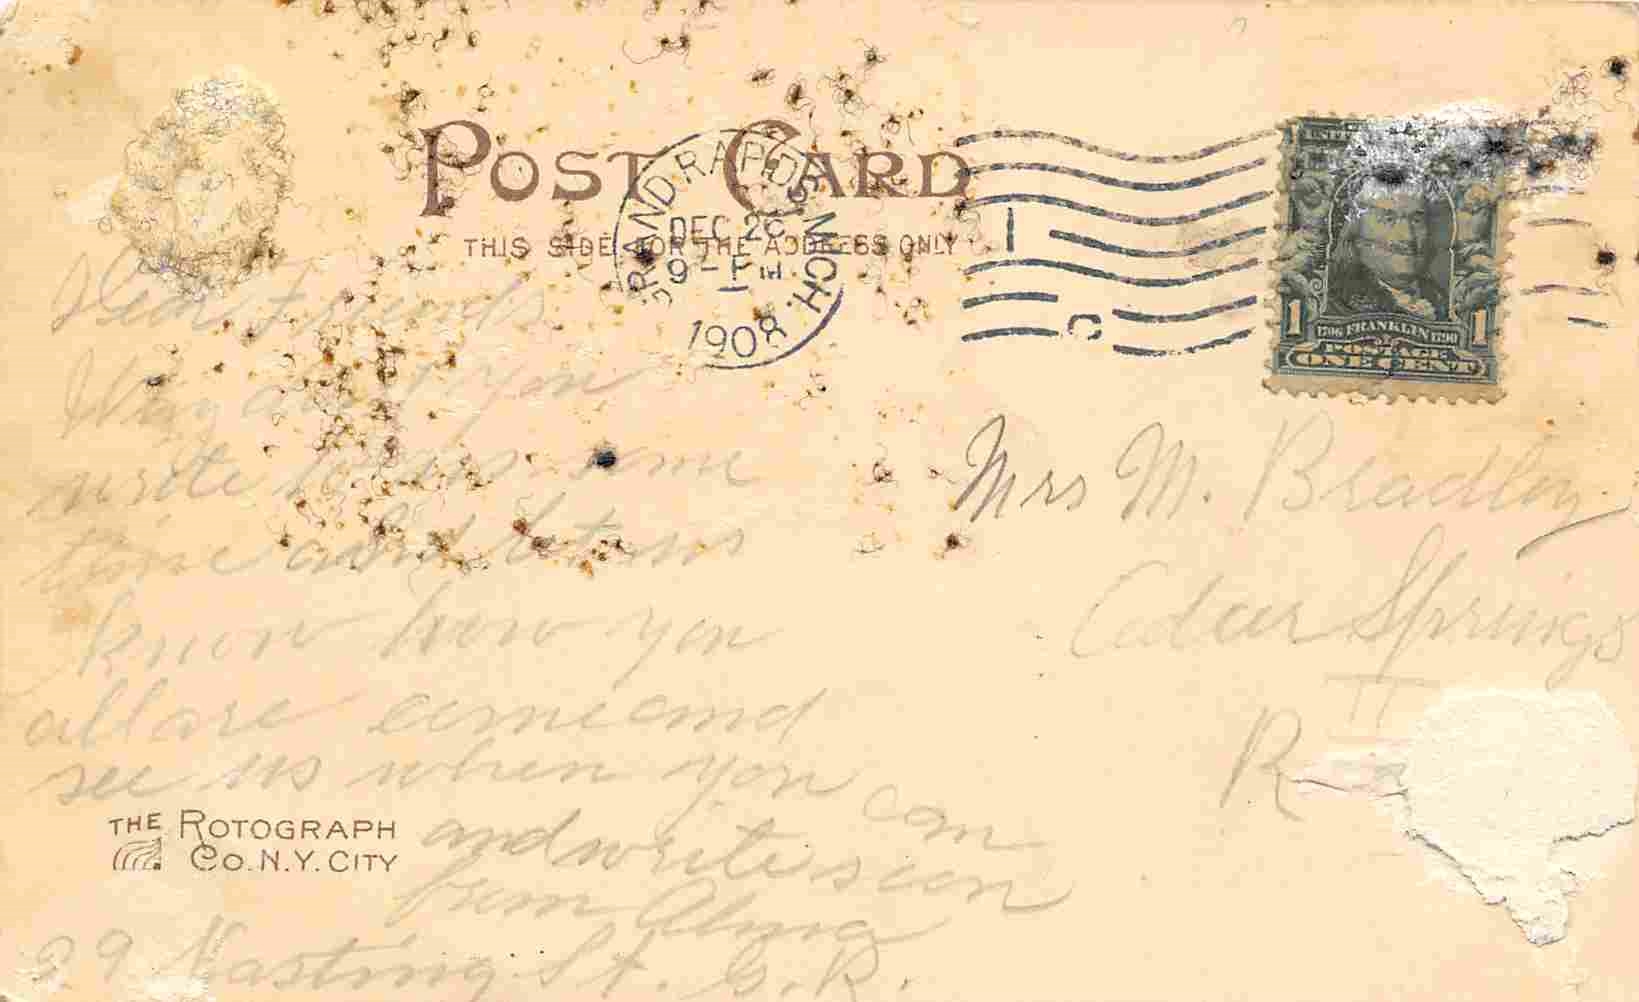 POST CARD
THIS SIDE FOR THE ADDRESS ONLY
GRAND RAPIDS MICH.
DEC 26
9-PM
1908
1
C
1706 FRANKLIN 1790
POSTAGE
1 ONE CENT 1
Dear Friends
Way dont you
write to us some
time and let us
know how you
all are come and
see us when you
com
and write soon
from Alma
29 Hasting St. G. R.
Mrs M. Bradley
Cedar Springs
R
THE ROTOGRAPH
CO. N.Y. CITY